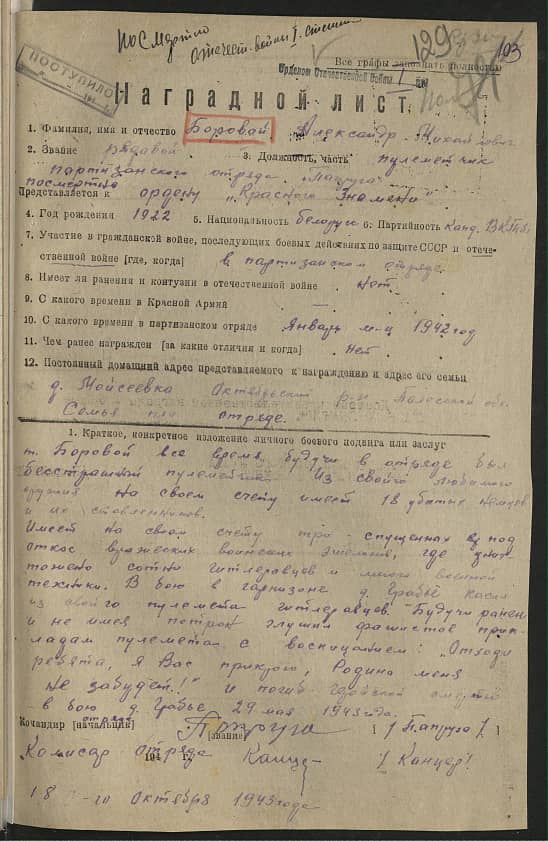 посмертно
отечест. войны I степени
129
103
Все графы заполнять полностью
ПОСТУПИЛО
Орденом Отечественной Войны I
Наградной лист
1. Фамилия, имя и отчество Боровой Александр Михайлович
2. Звание рядовой 3. Должность, часть пулеметчик
партизанского отряда "Папруга"
посмертно
Представляется к ордену "Красного Знамени"
4. Год рождения 1922 5. Национальность беларус 6. Партийность канд. ВКПб
7. Участие в гражданской войне, последующих боевых действиях по защите СССР и отече-
ственной войне [где, когда] в партизанском отряде
8. Имеет ли ранения и контузии в отечественной войне Нет
9. С какого времени в Красной Армии —
10. С какого времени в партизанском отряде Январь м-ц 1942 год
11. Чем ранее награжден [за какие отличия и когда] Нет
12. Постоянный домашний адрес представляемого к награждению и адрес его семьи
д. Мойсеевка Октябрьский р-н Полесской обл.
Семья при отряде.
1. Краткое, конкретное изложение личного боевого подвига или заслуг
т. Боровой все время будучи в отряде был
бесстрашный пулеметчик. Из своего любимого
оружия на своем счету имеет 18 убитых немцев
и их ставленников.
Имеет на своем счету три спущенных под
откос вражеских воинских эшелона, где унич
тожено сотни гитлеровцев и много военной
техники. В бою в гарнизоне д. Грабье косил
из своего пулемета гитлеровцев. Будучи ранен
и не имея патрон глушил фашистов прик-
ладам пулемета с восклицанием: „Отходи
ребята, я Вас прикрою, Родина меня
не забудет!" и погиб геройской смертью
в бою д. Грабье 29 мая 1943 года.
Командир [начальник] отряда Папруга / Папруга /
[звание]
Комисар отряда Канцер / Канцер /
194 г.
18-го Октября 1943 года